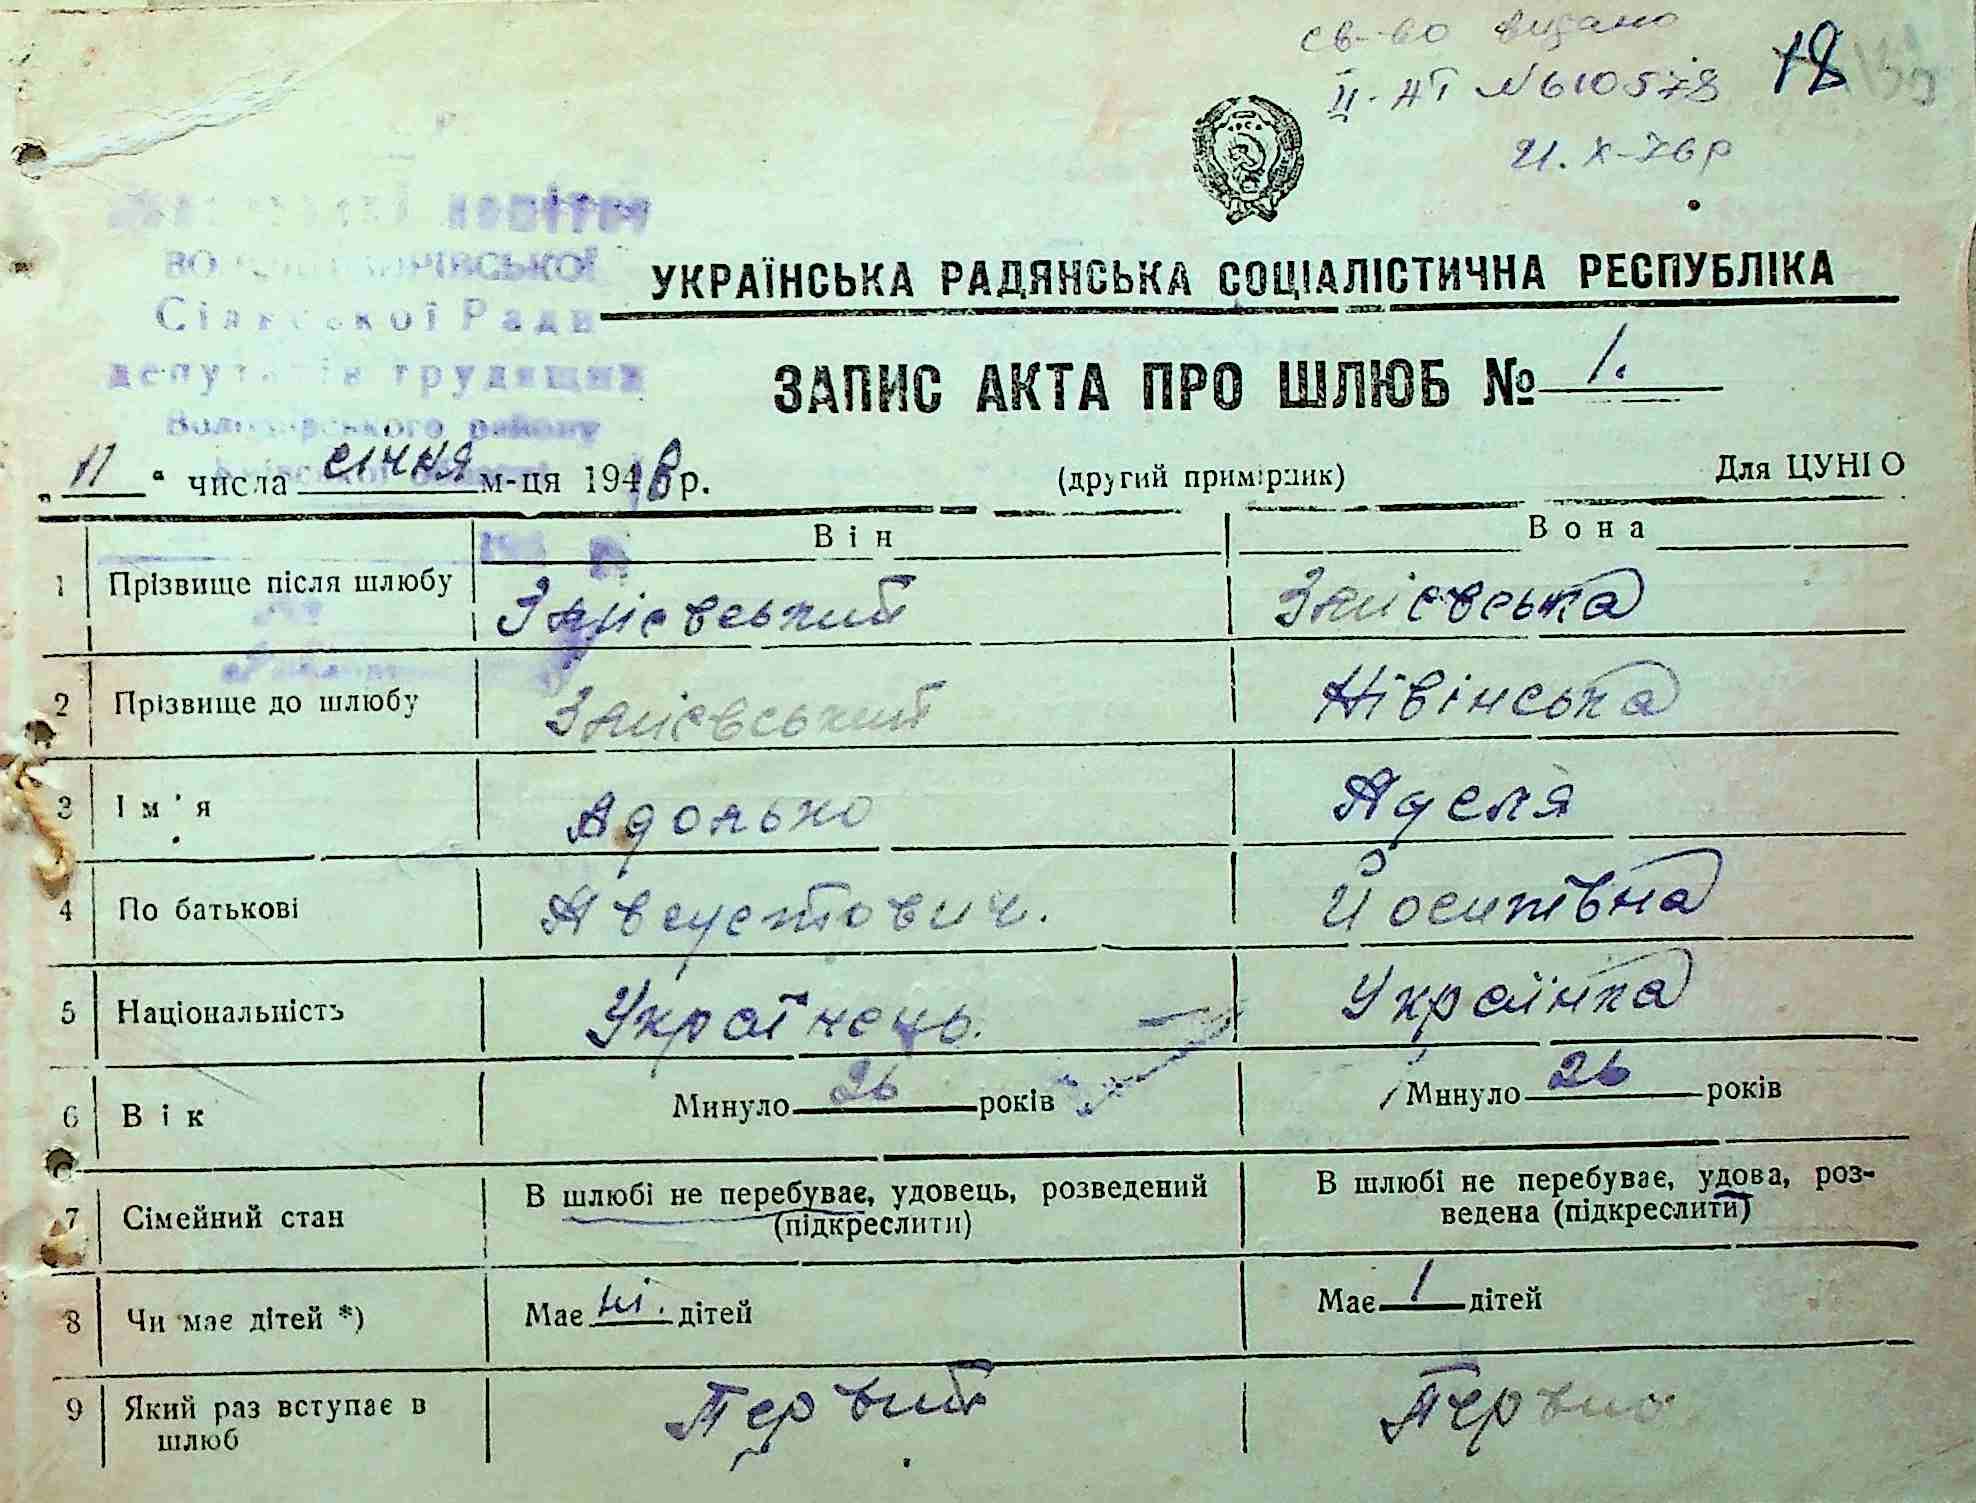 св-во видано
ІІ-АП №610578
21.X-76р
18
Сільської Ради
депутатів трудящих
УКРАЇНСЬКА РАДЯНСЬКА СОЦІАЛІСТИЧНА РЕСПУБЛІКА
ЗАПИС АКТА ПРО ШЛЮБ № 1.
„ 11 “ числа січня м-ця 1948 р.
(другий примірник)
Для ЦУНГО
Він
Вона
1 Прізвище після шлюбу Заієвський Заієвська
2 Прізвище до шлюбу Заієвський Нівінська
3 Ім'я Адолько Аделя
4 По батькові Августович. Йосипівна
5 Національність Українець. Українка
6 Вік Минуло 26 років Минуло 26 років
7 Сімейний стан В шлюбі не перебуває, удовець, розведений (підкреслити) В шлюбі не перебуває, удова, роз-
ведена (підкреслити)
8 Чи має дітей *) Має ні. дітей Має 1 дітей
9 Який раз вступає в Первий
шлюб